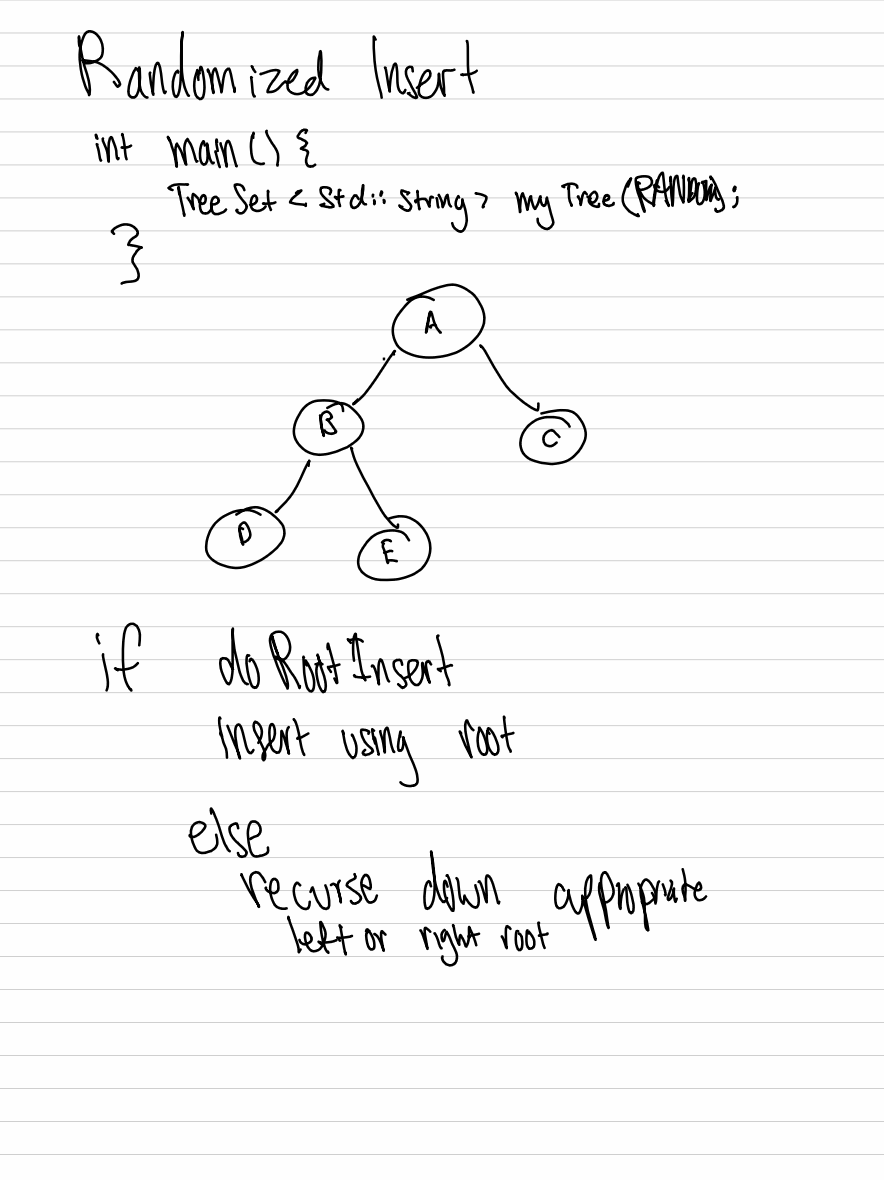 Randomized Insert
int main() {
TreeSet < std:: string > myTree (RANDOM);
}
A
B
C
D
E
if doRootInsert
insert using root
else
recurse down appropriate
left or right root